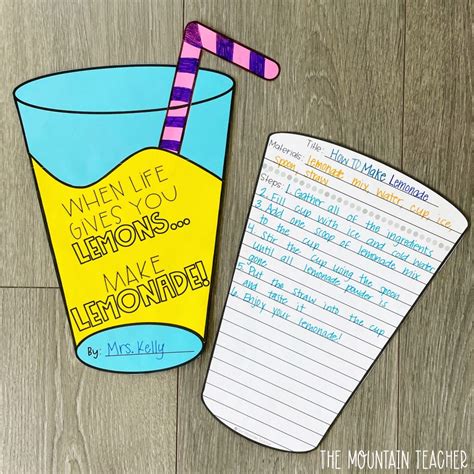 WHEN LIFE
GIVES YOU
LEMONS...
MAKE
LEMONADE!
By: Mrs. Kelly
Title: How To Make Lemonade
Materials: lemonade mix, water, cup, ice,
spoon, straw
Steps: 1. Gather all of the ingredients
2. Fill cup with ice and cold water
3. Add one scoop of lemonade mix
to the cup
4. Stir the cup using the spoon
until all lemonade powder is
gone
5. Put the straw into the cup
and taste it
6. Enjoy your lemonade!
THE MOUNTAIN TEACHER